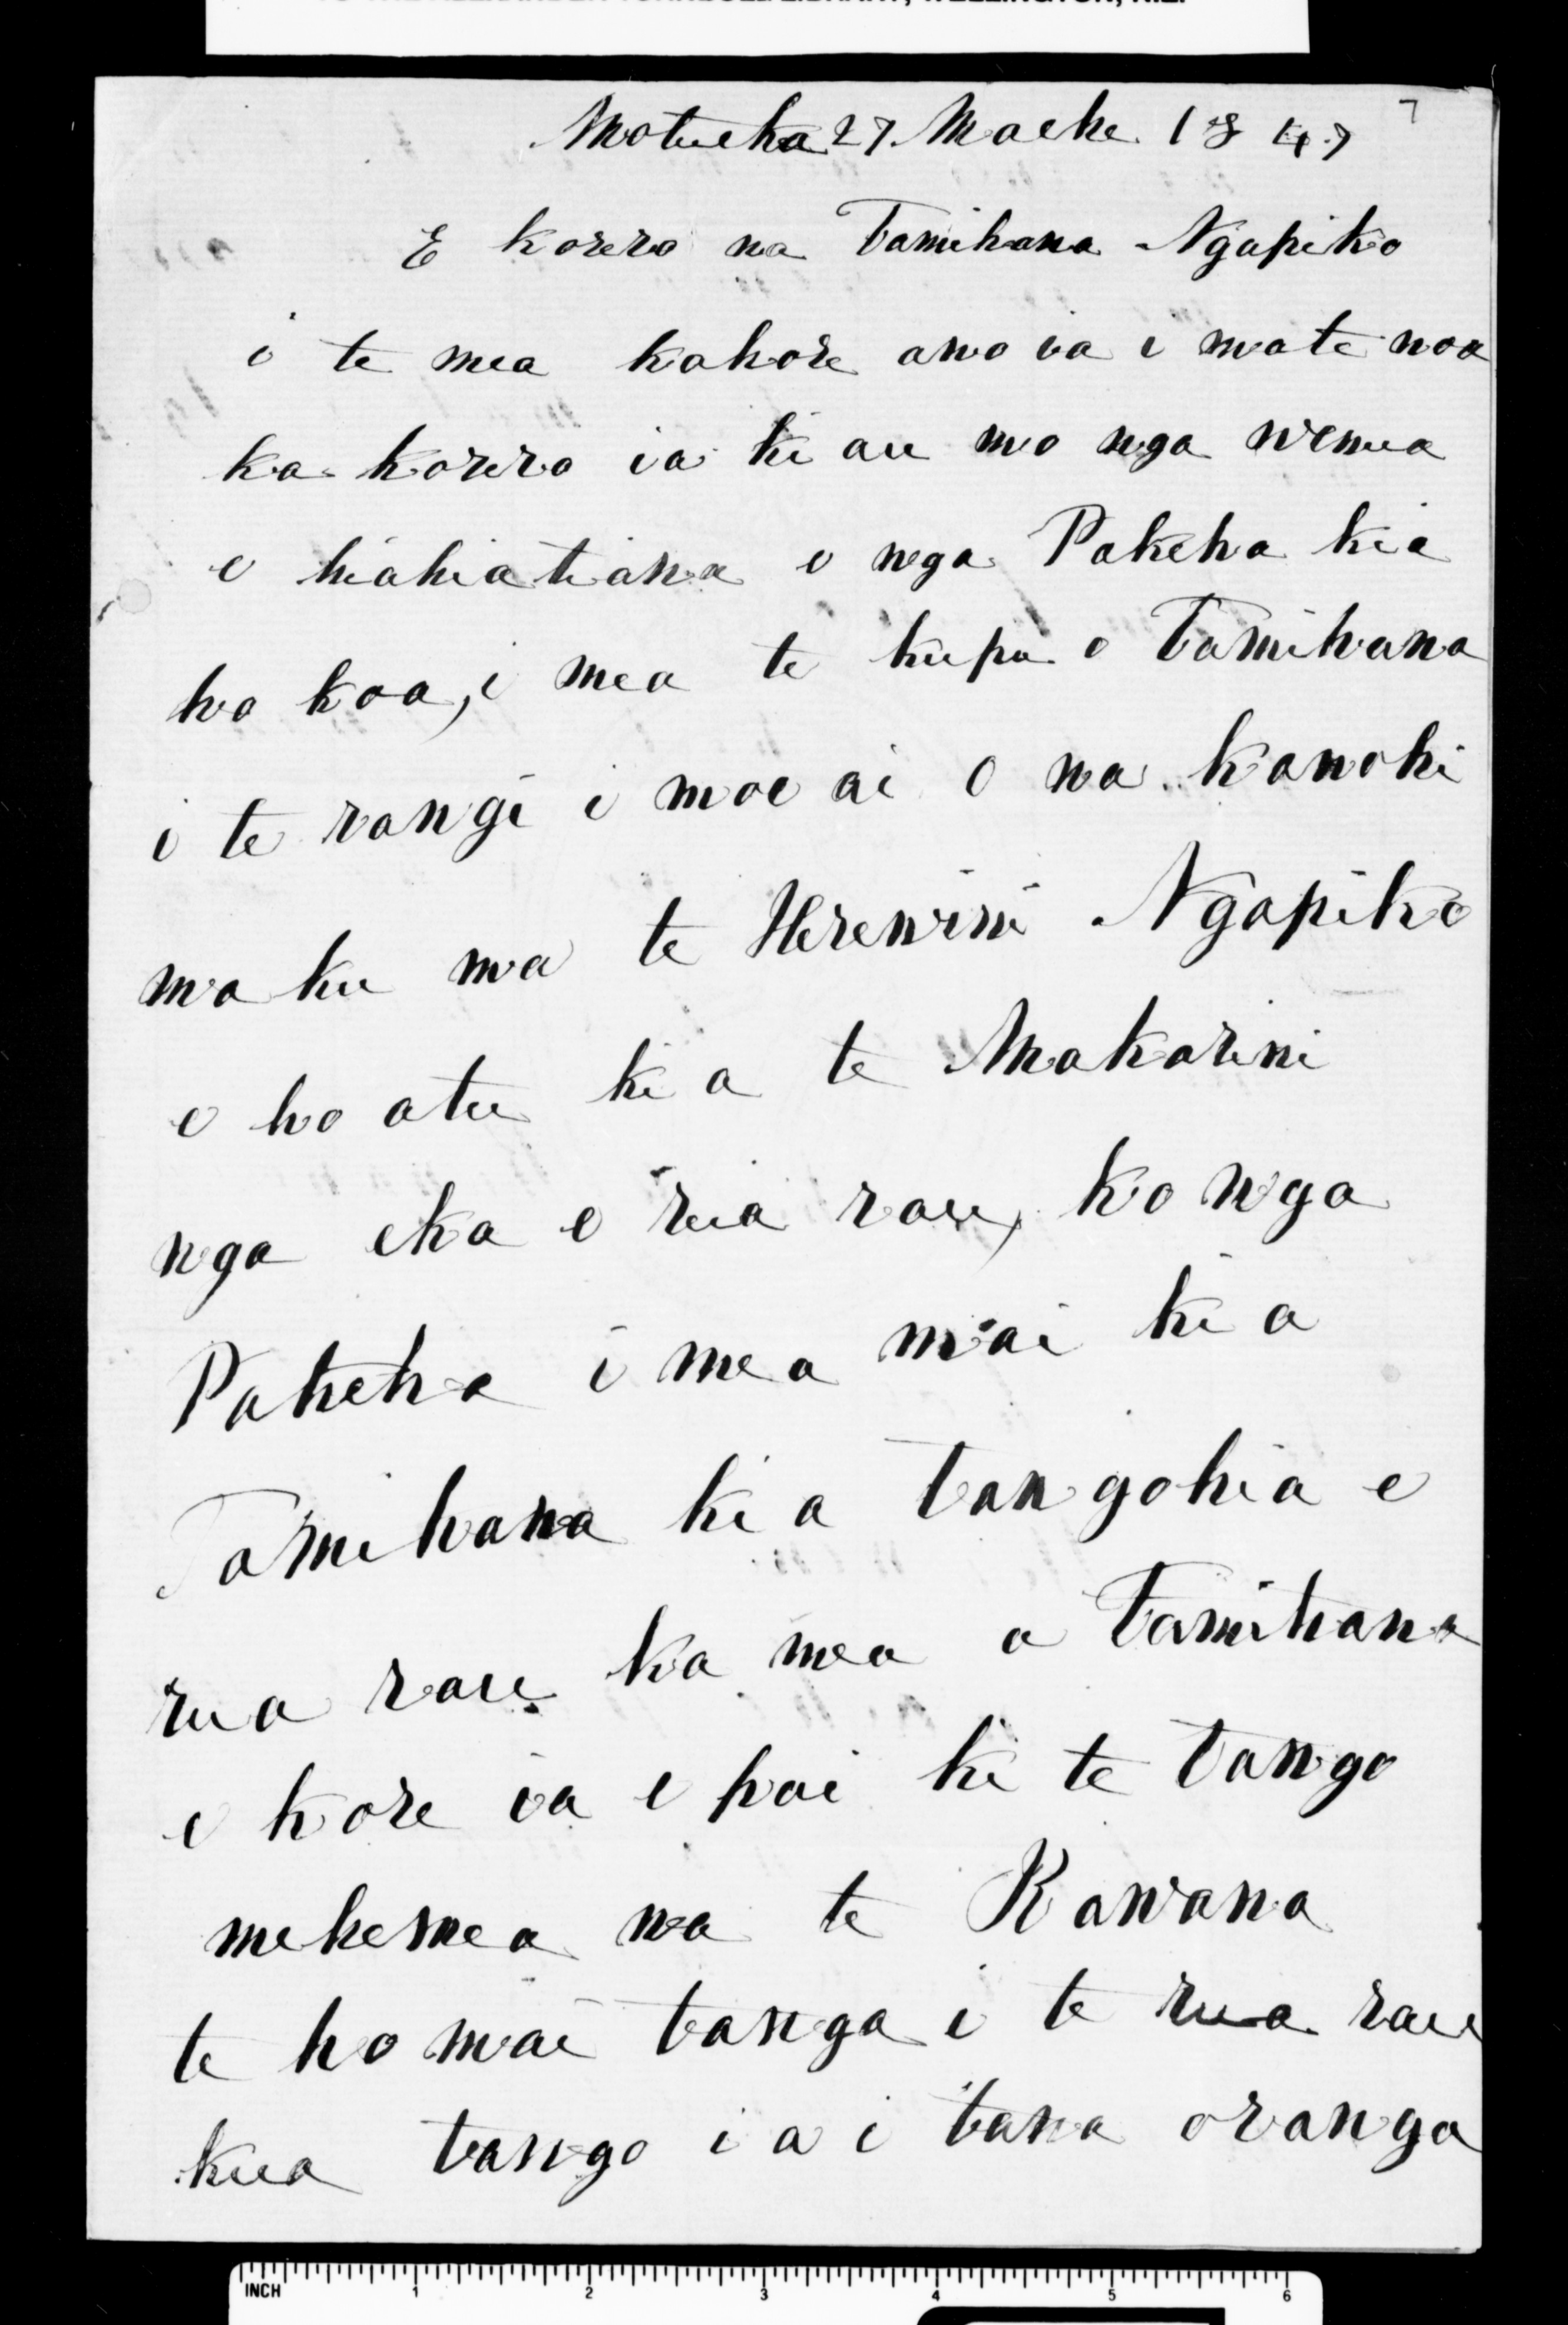 Motueka 27 Maehe 1847
7
E korero na Tamihana Ngapiko
i te mea kahore ano ia i mate noa
ka korero ia ki au mo nga wenua
e hiahiatiana e nga Pakeha kia
ho koa, i mea te kupu o Tamihana
i te rangi i moe ai o na kanohi
ma ku ma te Herewini Ngapiko
e ho atu ki a te Makarini
nga eka e rua rau, ko nga
Pakeha i mea mai ki a
Tamihana ki a tangohia e
rua rau ka mea a Tamihana
e kore ia e pai ki te tango
mehemea na te Kawana
te ho mai tanga i te rua rau
kua tango i a i tana oranga
INCH 1 2 3 4 5 6